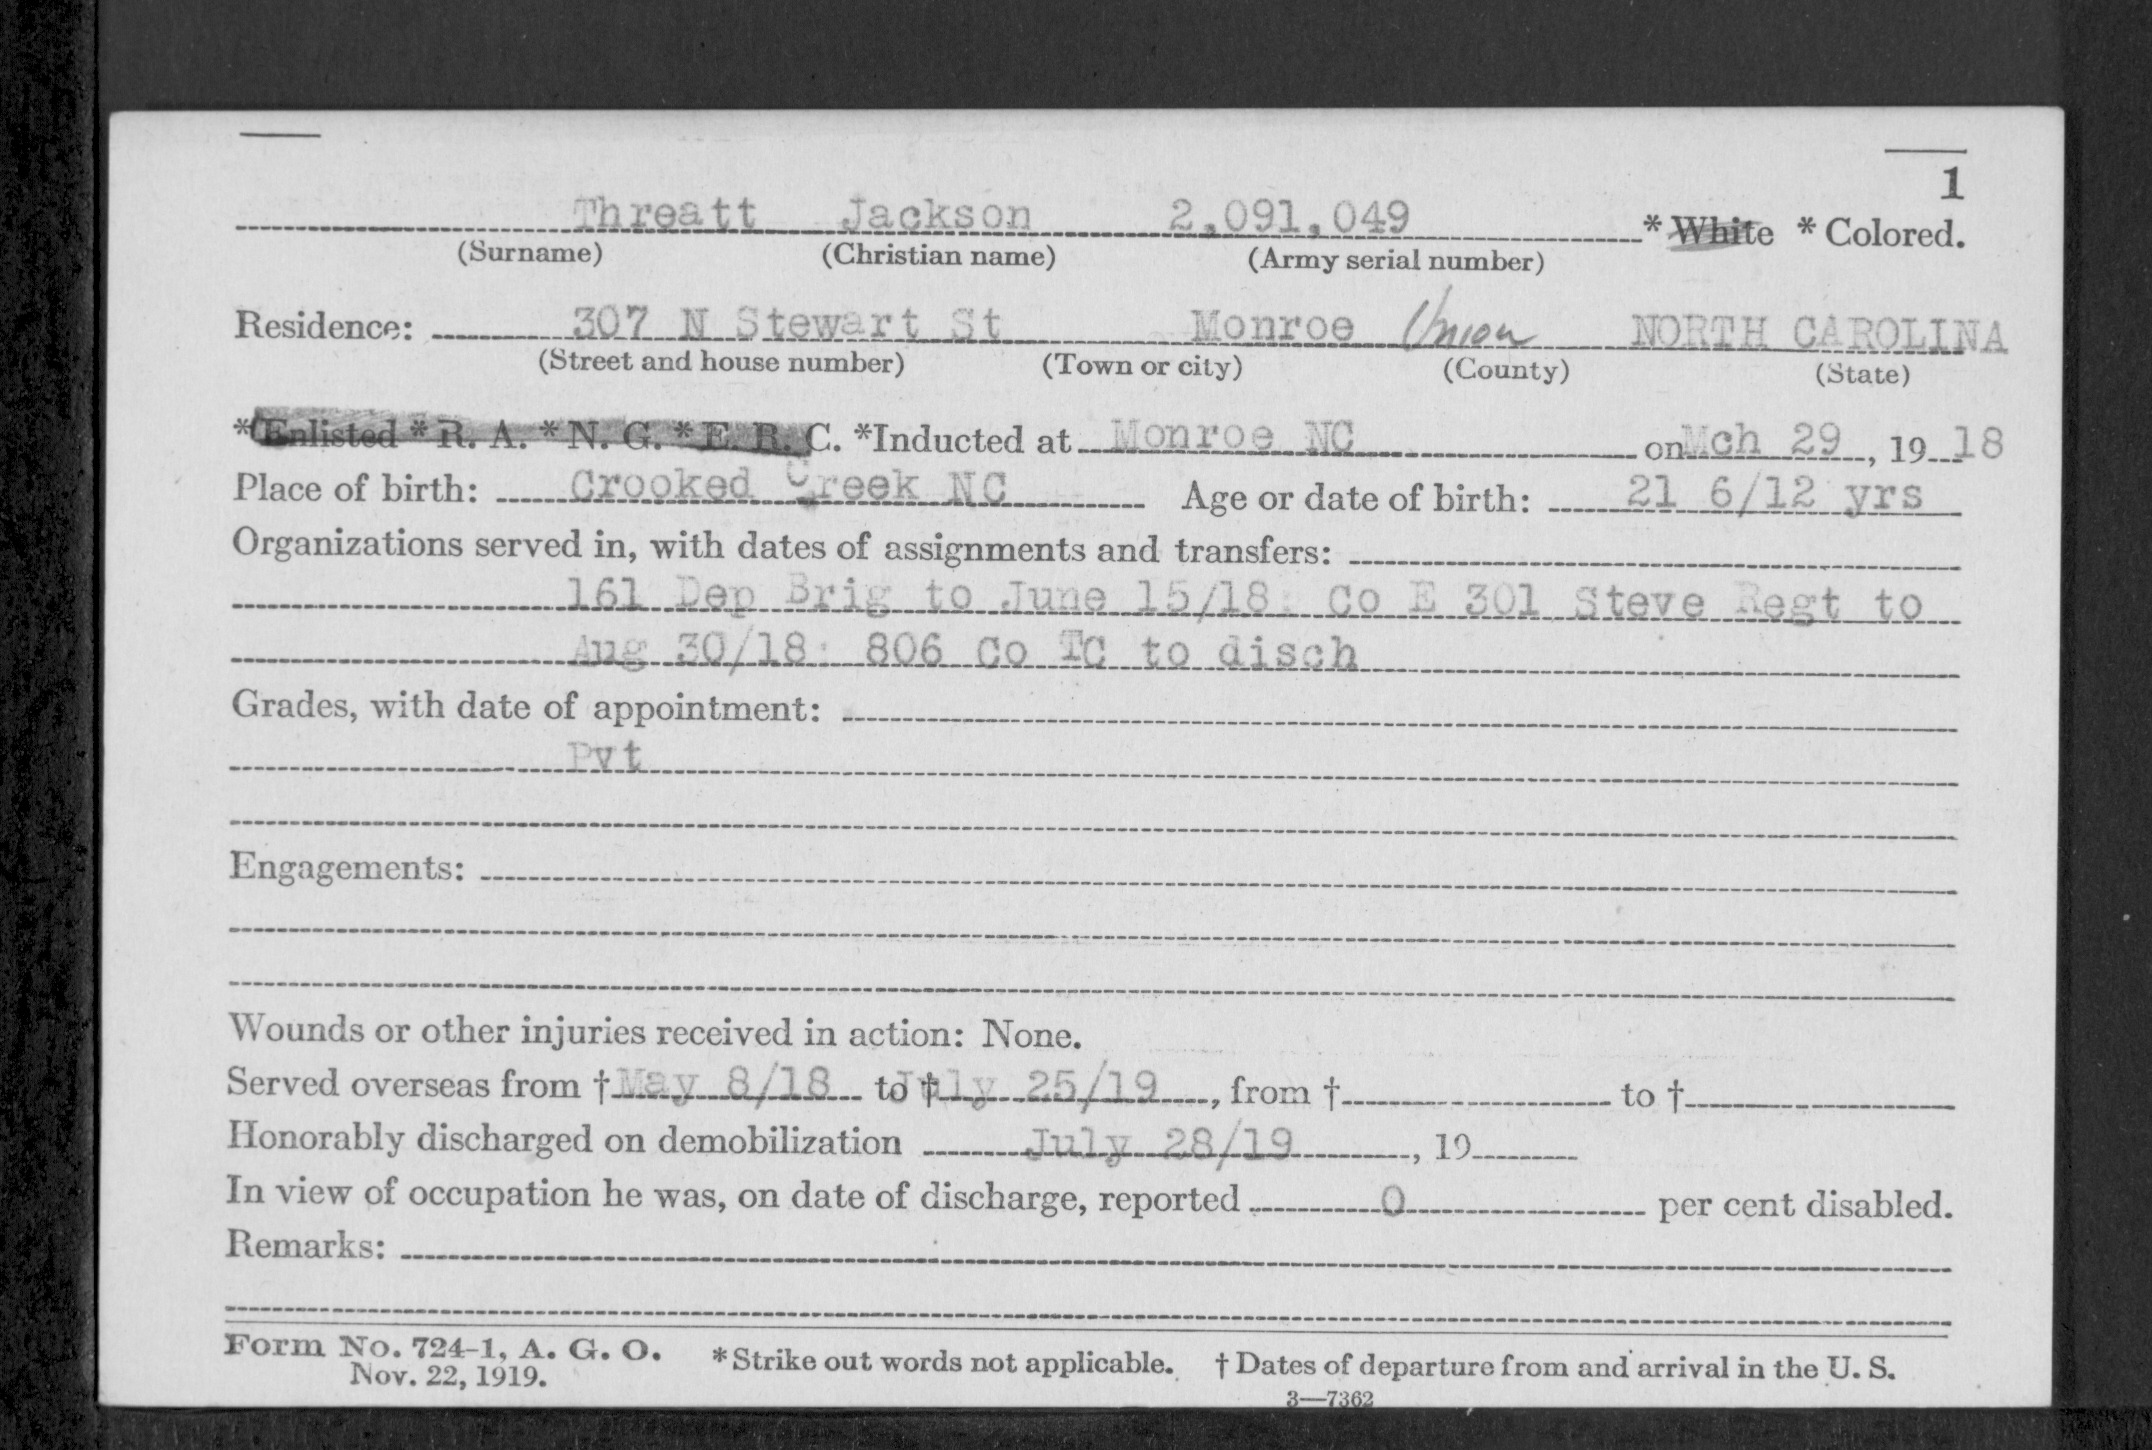 1
Threatt Jackson 2,091,049 * White * Colored.
(Surname) (Christian name) (Army serial number)
Residence: 307 N Stewart St Monroe Union NORTH CAROLINA
(Street and house number) (Town or city) (County) (State)
*Enlisted *R. A. *N. G. *E. R. C. *Inducted at Monroe NC on Mch 29, 1918
Place of birth: Crooked Creek NC Age or date of birth: 21 6/12 yrs
Organizations served in, with dates of assignments and transfers:
161 Dep Brig to June 15/18: Co E 301 Steve Regt to
Aug 30/18: 806 Co TC to disch
Grades, with date of appointment:
Pvt
Engagements:
Wounds or other injuries received in action: None.
Served overseas from † May 8/18 to † July 25/19, from † to †
Honorably discharged on demobilization July 28/19, 19
In view of occupation he was, on date of discharge, reported 0 per cent disabled.
Remarks:
Form No. 724-1, A. G. O. *Strike out words not applicable. † Dates of departure from and arrival in the U. S.
Nov. 22, 1919.
3—7362